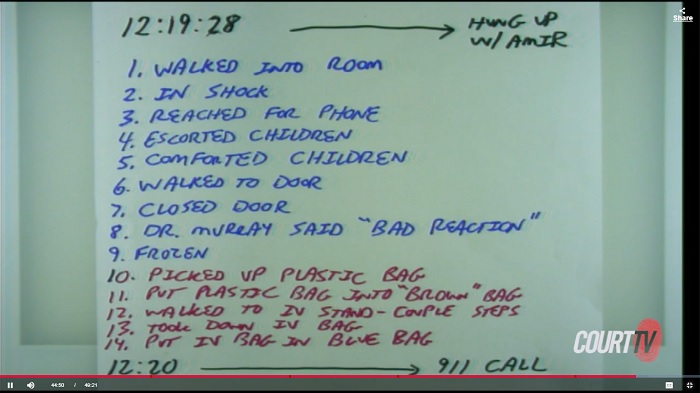 Share
12:19:28 → HUNG UP
W/ AMIR
1. WALKED INTO ROOM
2. IN SHOCK
3. REACHED FOR PHONE
4. ESCORTED CHILDREN
5. COMFORTED CHILDREN
6. WALKED TO DOOR
7. CLOSED DOOR
8. DR. MURRAY SAID "BAD REACTION"
9. FROZEN
10. PICKED UP PLASTIC BAG
11. PUT PLASTIC BAG INTO "BROWN" BAG
12. WALKED TO IV STAND - COUPLE STEPS
13. TOOK DOWN IV BAG
14. PUT IV BAG IN BLUE BAG
COURT TV
12:20 → 911 CALL
44:50 / 49:21